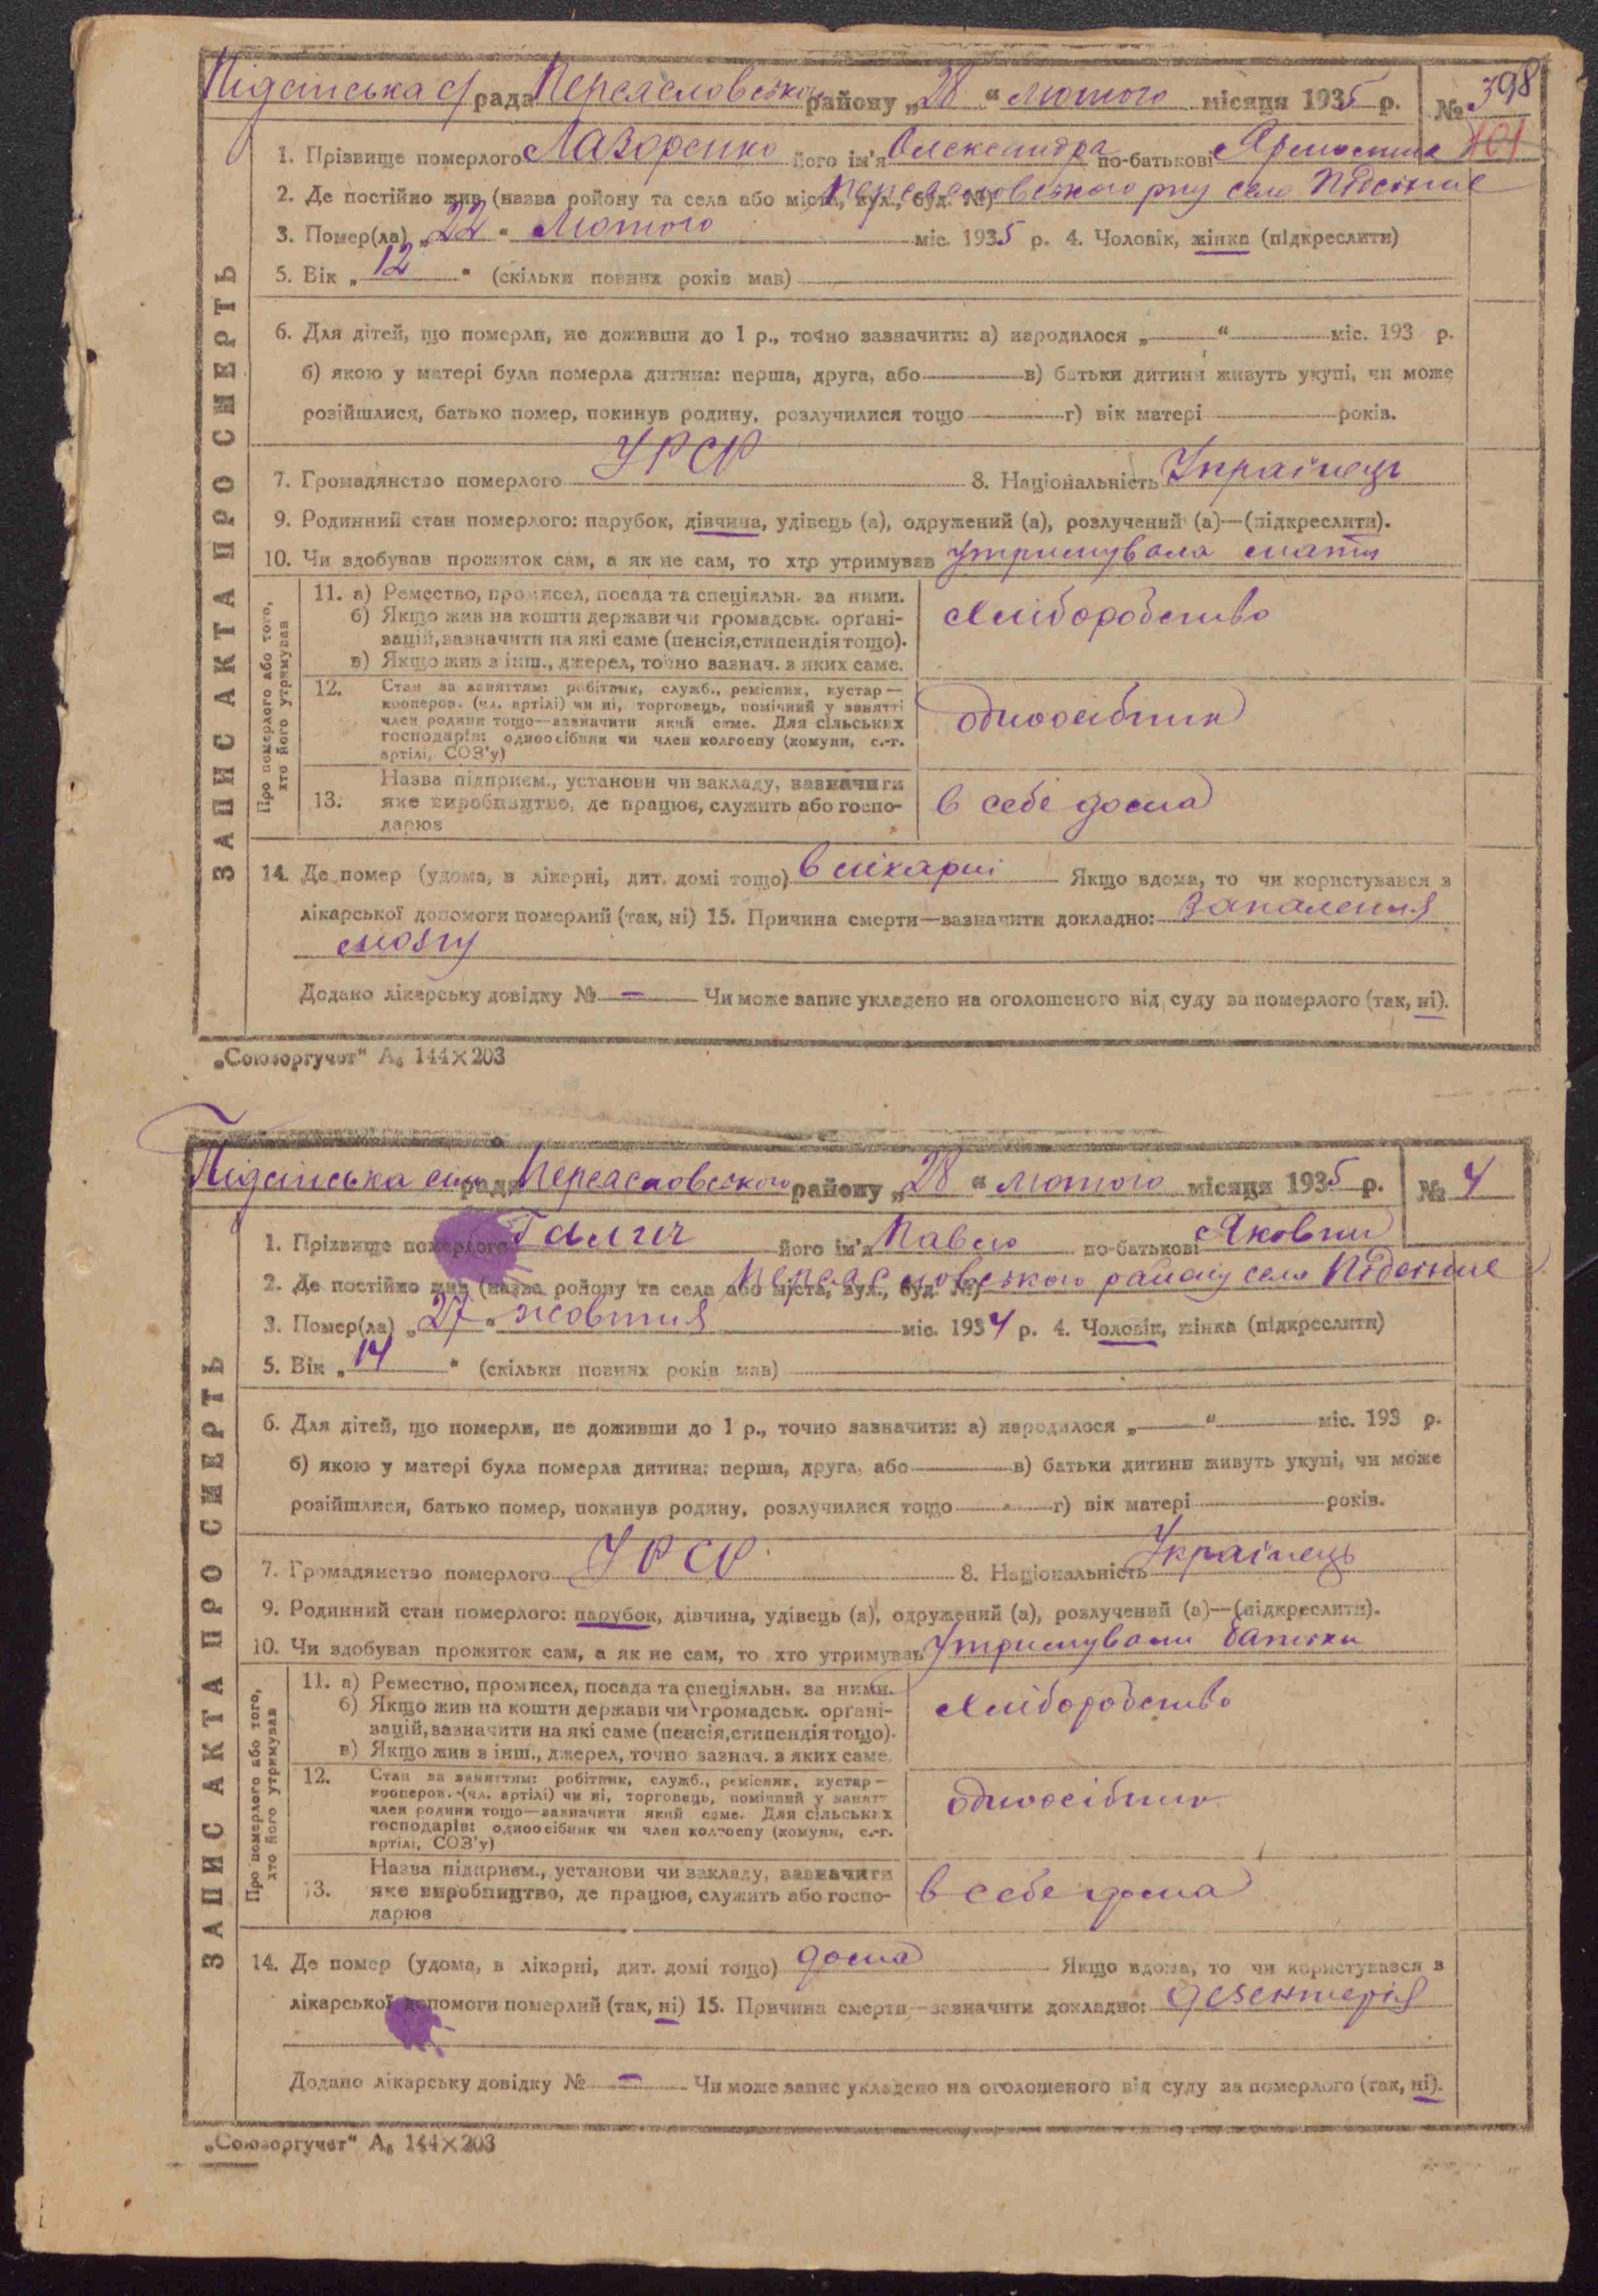 Підсінська с/рада Переясловського району „28“ лютого місяця 1935 р. № 398
401
1. Прізвище померлого Лазоренко його ім'я Олександра по-батькові
2. Де постійно жив (назва району та села або міста, вул., буд. №) Переясловського р-ну село Підсінне
3. Помер(ла) „22“ Лютого міс. 1935 р. 4. Чоловік, жінка (підкреслити)
5. Вік „12“ (скільки повних років мав)
6. Для дітей, що померли, не доживши до 1 р., точно зазначити: а) народилося „ “ міс. 193 р.
б) якою у матері була померла дитина: перша, друга, або в) батьки дитини живуть укупі, чи може
розійшлися, батько помер, покинув родину, розлучилися тощо г) вік матері років.
7. Громадянство померлого УРСР 8. Національність Українець
9. Родинний стан померлого: парубок, дівчина, удівець (а), одружений (а), розлучений (а)—(підкреслити).
10. Чи здобував прожиток сам, а як не сам, то хто утримував Утримувала мати
11. а) Ремество, промисел, посада та спеціяльн. за ними.
б) Якщо жив на кошти держави чи громадськ. орґані-
зацій, зазначити на які саме (пенсія, стипендія тощо).
в) Якщо жив з інш., джерел, точно зазнач. з яких саме.
Хліборобство
12. Стан за заняттям: робітник, служб., ремісник, кустар—
кооперов. (чл. артілі) чи ні, торговець, помічний у занятті
член родини тощо—зазначити який саме. Для сільських
господарів: одноосібник чи член колгоспу (комуни, с.-г.
артілі, СОЗ'у)
одноосібник
13. Назва підприєм., установи чи закладу, зазначити
яке виробництво, де працює, служить або госпо-
дарює
в себе дома
14. Де помер (удома, в лікарні, дит. домі тощо) в лікарні Якщо вдома, то чи користувався з
лікарської допомоги померлий (так, ні) 15. Причина смерти—зазначити докладно: Запалення
мозгу
Додано лікарську довідку № — Чи може запис укладено на оголошеного від суду за померлого (так, ні).
ЗАПИС АКТА ПРО СМЕРТЬ
Про померлого або того,
хто його утримував
„Союзоргучет“ А₆ 144×203
Підсінська сільрада Переясловського району „28“ лютого місяця 1935 р. № 4
1. Прізвище померлого Галич його ім'я Павло по-батькові Якович
2. Де постійно жив (назва району та села або міста, вул., буд. №) Переясловського району село Підсінне
3. Помер(ла) „27“ жовтня міс. 1934 р. 4. Чоловік, жінка (підкреслити)
5. Вік „14“ (скільки повних років мав)
6. Для дітей, що померли, не доживши до 1 р., точно зазначити: а) народилося „ “ міс. 193 р.
б) якою у матері була померла дитина: перша, друга, або в) батьки дитини живуть укупі, чи може
розійшлися, батько помер, покинув родину, розлучилися тощо г) вік матері років.
7. Громадянство померлого УРСР 8. Національність Українець
9. Родинний стан померлого: парубок, дівчина, удівець (а), одружений (а), розлучений (а)—(підкреслити).
10. Чи здобував прожиток сам, а як не сам, то хто утримував Утримували батьки
11. а) Ремество, промисел, посада та спеціяльн. за ними.
б) Якщо жив на кошти держави чи громадськ. орґані-
зацій, зазначити на які саме (пенсія, стипендія тощо).
в) Якщо жив з інш., джерел, точно зазнач. з яких саме.
Хліборобство
12. Стан за заняттям: робітник, служб., ремісник, кустар—
кооперов. (чл. артілі) чи ні, торговець, помічний у занятт
член родини тощо—зазначити який саме. Для сільських
господарів: одноосібник чи член колгоспу (комуни, с.-г.
артілі, СОЗ'у)
одноосібник
13. Назва підприєм., установи чи закладу, зазначити
яке виробництво, де працює, служить або госпо-
дарює
в себе дома
14. Де помер (удома, в лікарні, дит. домі тощо) дома Якщо вдома, то чи користувався з
лікарської допомоги померлий (так, ні) 15. Причина смерти—зазначити докладно: дезентерія
Додано лікарську довідку № — Чи може запис укладено на оголошеного від суду за померлого (так, ні).
ЗАПИС АКТА ПРО СМЕРТЬ
Про померлого або того,
хто його утримував
„Союзоргучет“ А₆ 144×203